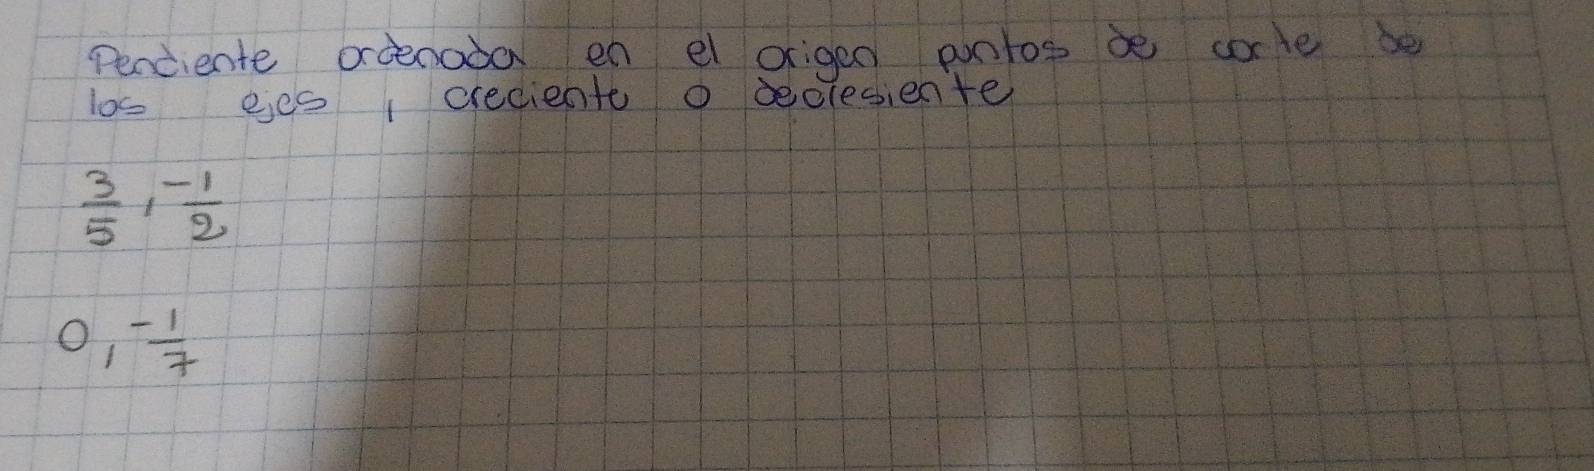 Pendiente ordenada en el origen puntos de corte de
los ejes, creciente o decresiente
3/5, -1/2
0, -1/7